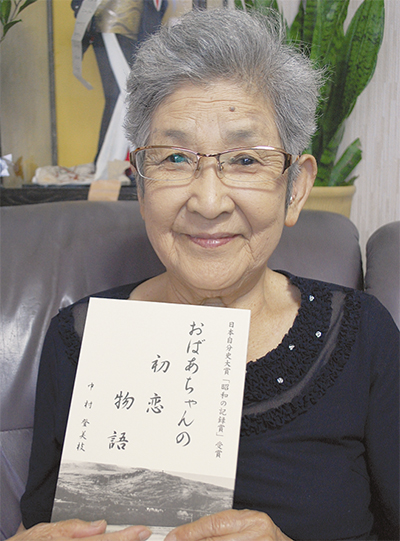 日本自分史大賞「昭和の記録賞」受賞
おばあちゃんの
初恋
物語
中村登美枝